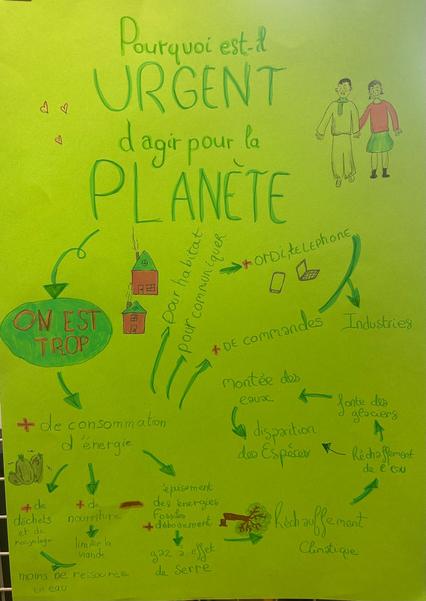 Pourquoi est-il
URGENT
d'agir pour la
PLANÈTE
ON EST
TROP
pour habitat
pour communiquer
+ ORDI, TELEPHONE
Industries
+ DE commandes
+ de consommation
d'énergie
montée des
eaux
disparition
des Espèces
fonte des
glaciers
Réchauffement
de l'eau
Réchauffement
Climatique
+ de
déchets
et de
recyclage
+ de
nourriture
limite la
viande
moins de ressources
en eau
épuisement
des énergies
Fossiles
+ déboisement
gaz à effet
de serre